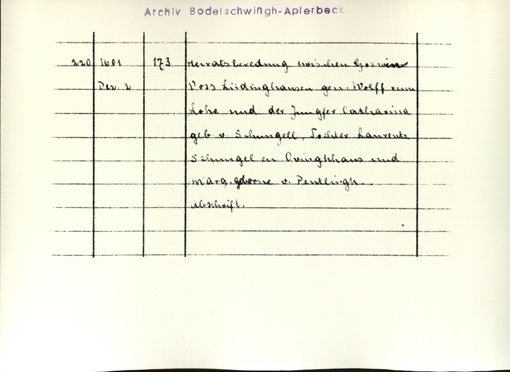 Archiv Bodelschwingh-Aplerbeck
220 1601 173 Heiratsberedung zwischen Goswin
Dez. 2 Voss Lüdinghausen gen. Wolff zum
Lohe und der Jungfer Catharina
geb. v. Schungell, Tochter Laurents
Schungel zu Ovingkhaus und
Marg. geborne v. Pentlingk.
Abschrift.